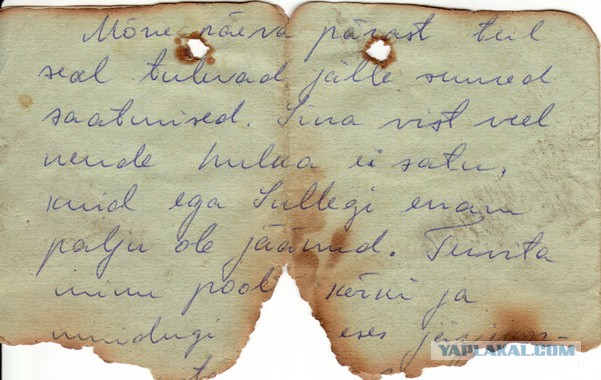 Mõne päeva pärast teil
seal tulevad jälle suured
saatmised. Sina vist veel
nende hulka ei satu,
kuid ega Sullegi enam
palju ole jäänud. Tervita
minu poolt kõiki ja
muidugi
YAPLAKAL.COM